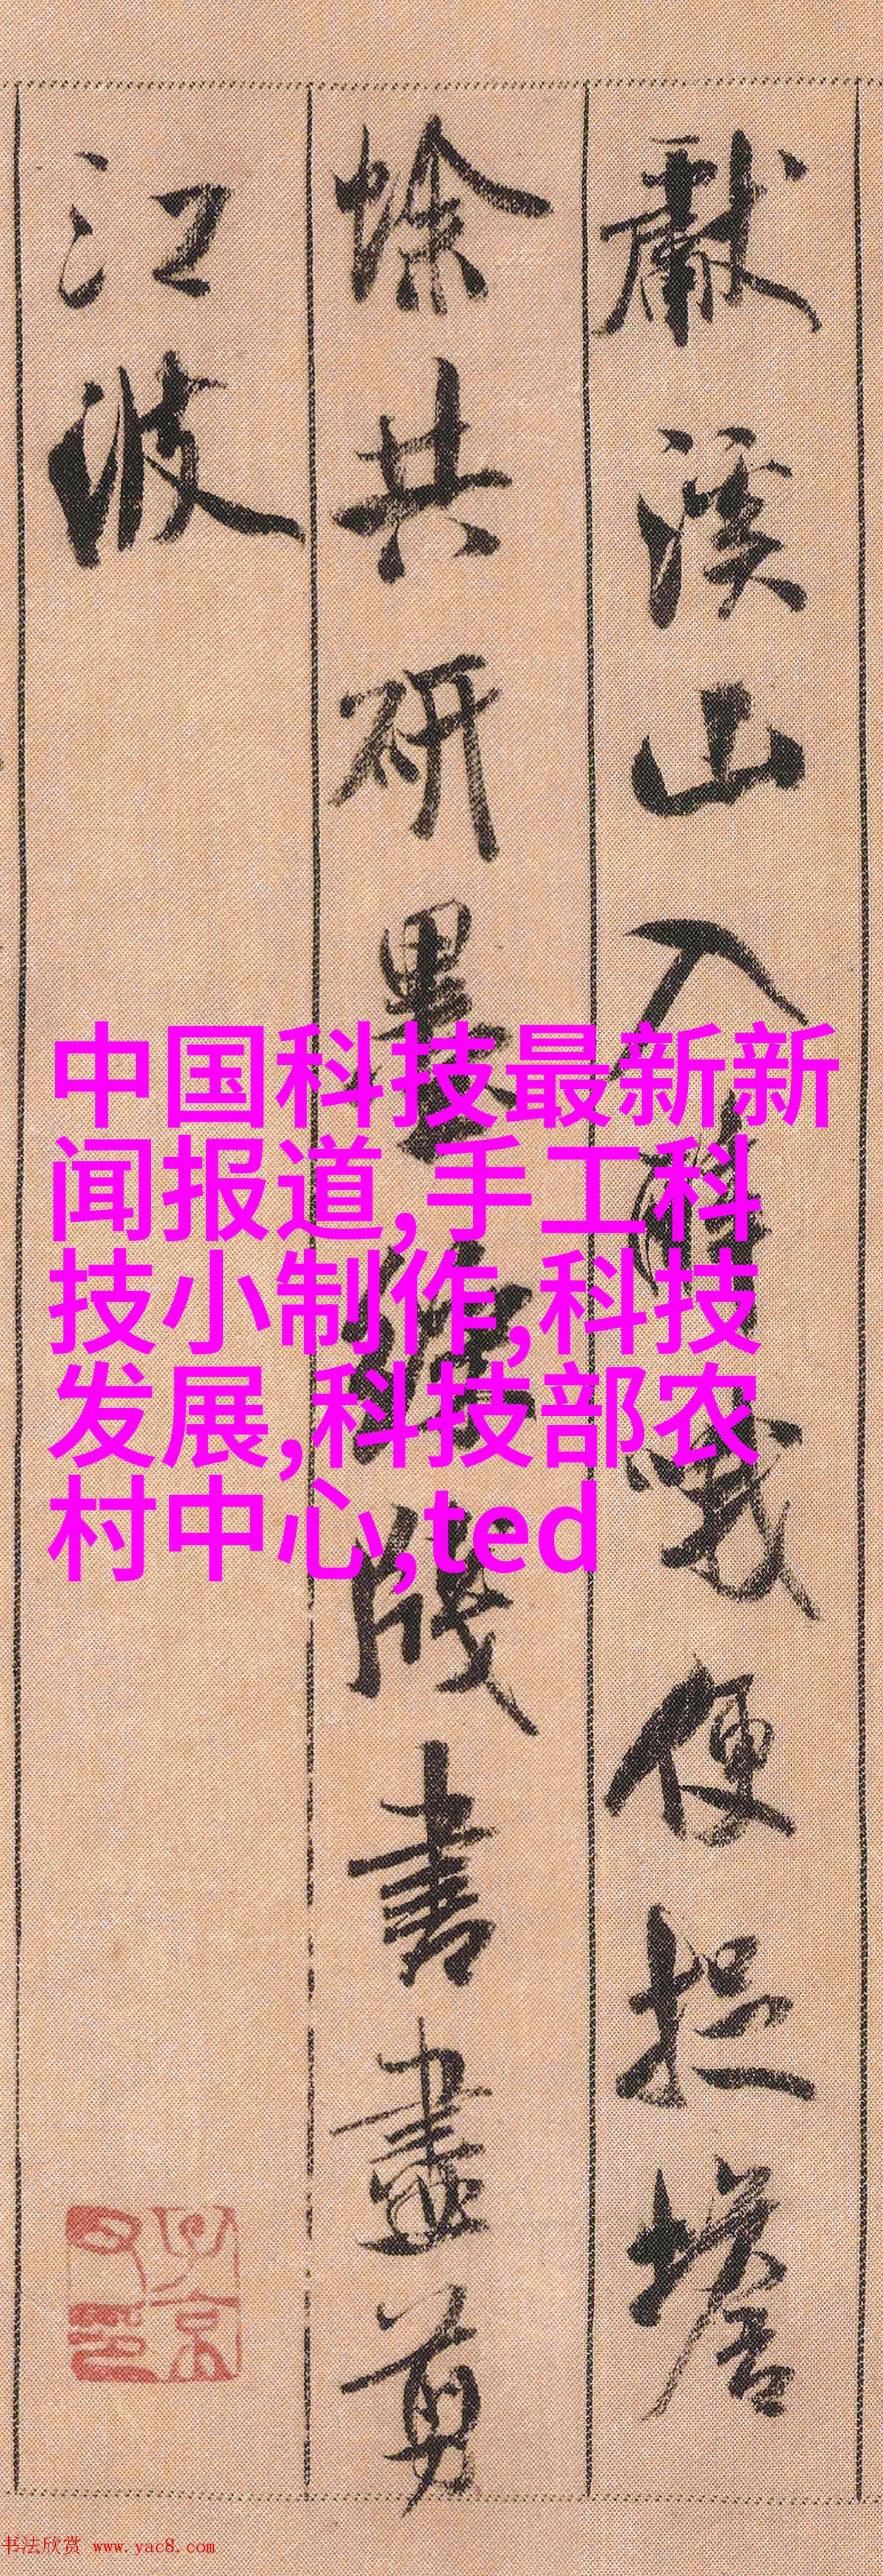 獻溪山入醉哦便捉蟾
蜍共研墨綵牋書盡剪
江波
中国科技最新新
闻报道,手工科
技小制作,科技
发展,科技部农
村中心,ted
书法欣赏 www.yac8.com